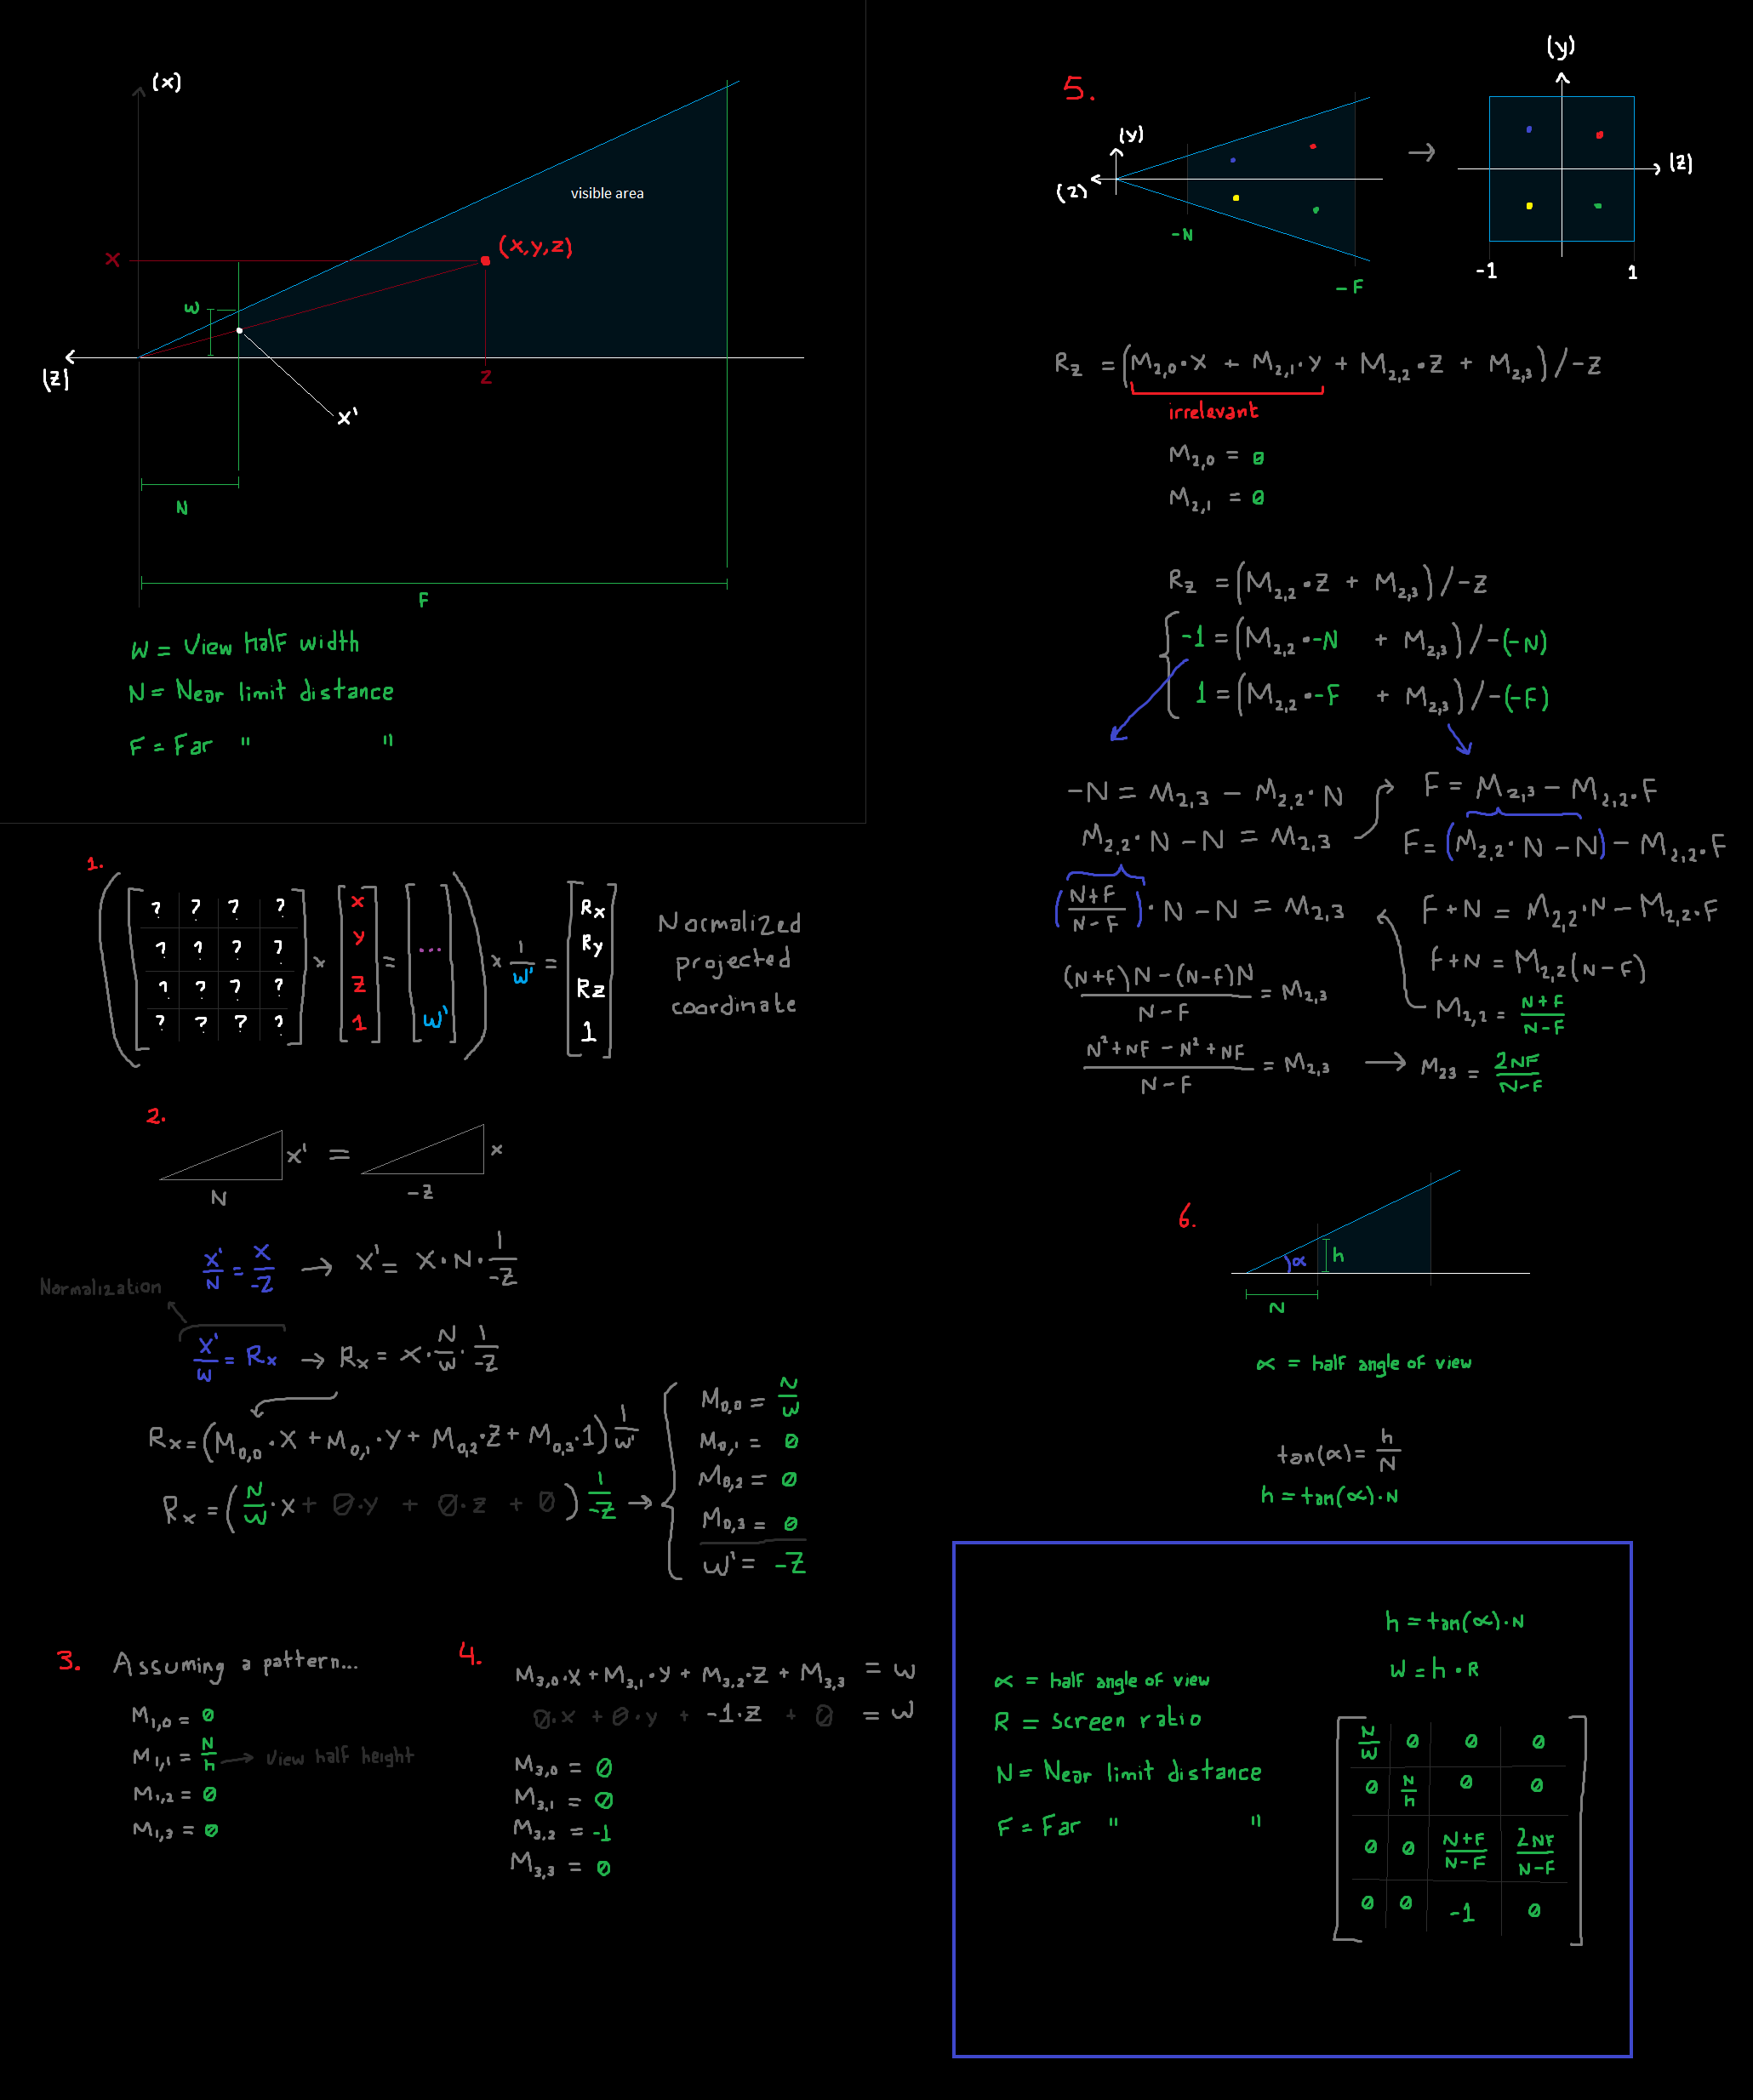 (x)
visible area
x
(x,y,z)
w
(z)
z
x'
N
F
W = View half width
N = Near limit distance
F = Far " "
1.
? ? ? ?
? ? ? ?
? ? ? ?
? ? ? ?
×
x
y
z
1
=
...
w'
× 1/w' =
Rx
Ry
Rz
1
Normalized
projected
coordinate
2.
x' = x
N -z
x'/N = x/-z → x' = x·N·1/-z
Normalization
x'/w = Rx → Rx = x·N/w·1/-z
Rx = (M0,0·x + M0,1·y + M0,2·z + M0,3·1) 1/w'
Rx = (N/w·x + 0·y + 0·z + 0) 1/-z →
M0,0 = N/w
M0,1 = 0
M0,2 = 0
M0,3 = 0
w' = -z
3. Assuming a pattern...
M1,0 = 0
M1,1 = N/h → View half height
M1,2 = 0
M1,3 = 0
4.
M3,0·x + M3,1·y + M3,2·z + M3,3 = w
0·x + 0·y + -1·z + 0 = w
M3,0 = 0
M3,1 = 0
M3,2 = -1
M3,3 = 0
5.
(y)
(z)
-N
-F
→
(y)
(z)
-1 1
Rz = (M2,0·x + M2,1·y + M2,2·z + M2,3) / -z
irrelevant
M2,0 = 0
M2,1 = 0
Rz = (M2,2·z + M2,3) / -z
-1 = (M2,2·-N + M2,3) / -(-N)
1 = (M2,2·-F + M2,3) / -(-F)
-N = M2,3 - M2,2·N
M2,2·N - N = M2,3
(N+F/N-F)·N - N = M2,3
(N+F)N - (N-F)N / N-F = M2,3
N²+NF - N²+NF / N-F = M2,3 → M23 = 2NF/N-F
F = M2,3 - M2,2·F
F = (M2,2·N - N) - M2,2·F
F+N = M2,2·N - M2,2·F
F+N = M2,2(N-F)
M2,2 = N+F/N-F
6.
α
h
N
α = half angle of view
tan(α) = h/N
h = tan(α)·N
h = tan(α)·N
W = h·R
α = half angle of view
R = Screen ratio
N = Near limit distance
F = Far " "
N/W 0 0 0
0 N/h 0 0
0 0 N+F/N-F 2NF/N-F
0 0 -1 0